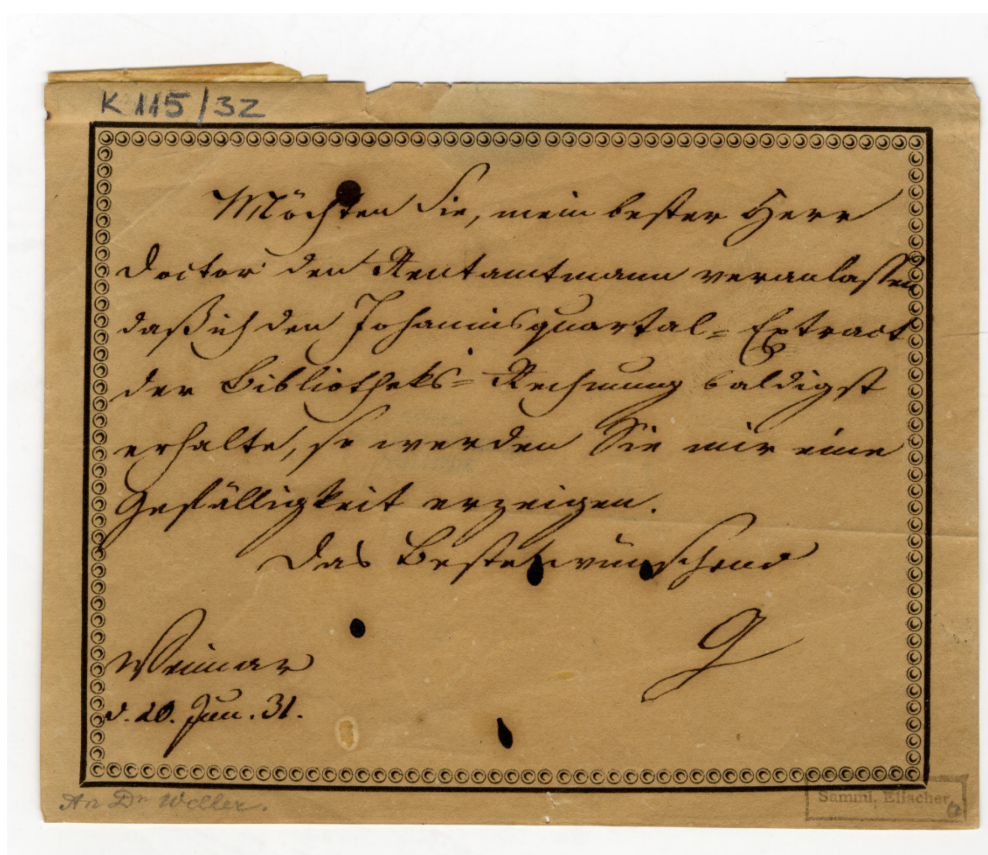 K 115/32
Möchten Sie, mein bester Herr
Doctor den Rentamtmann veranlassen
daß ich den Johannisquartal-Extract
der Bibliotheks-Rechnung baldigst
erhalte, so werden Sie mir eine
Gefälligkeit erzeigen.
Das Beste wünschend
G
Weimar
d. 20. Jun. 31.
An Dr Weller.
Samml. Elischer